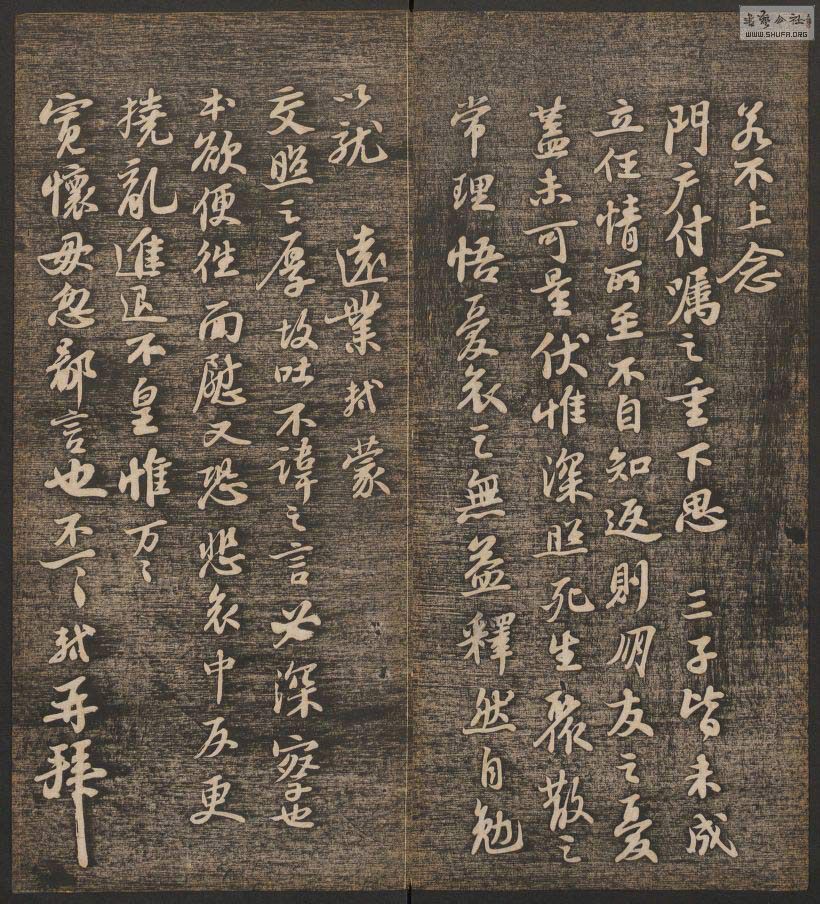 若不上念
門户付嘱之重下思 三子皆未成
立任情所至不自知返則朋友之憂
蓋未可量伏惟深照死生聚散之
常理悟憂哀之無益釋然自勉
以就 遠業軾蒙
交照之厚故吐不諱之言必深察也
本欲便往面慰又恐悲哀中反更
撓亂進退不皇惟万万
寛懷毋忽鄙言也不一一軾再拜
書藝公社
WWW.SHUFA.ORG